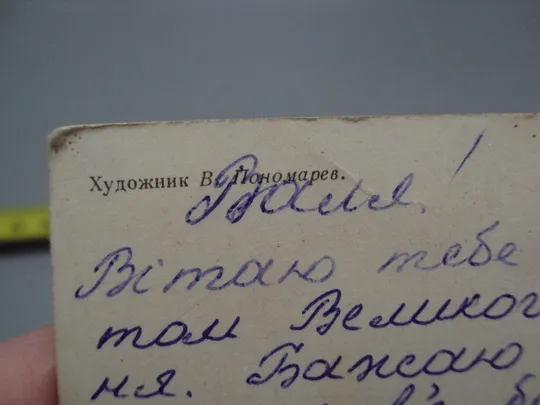 Художник В. Пономарев.
Валя!
Вітаю тебе
том Великог
ня. Бажаю